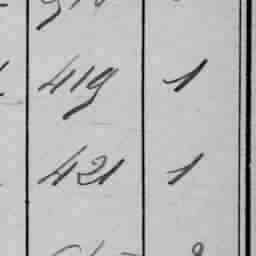 419 1
421 1